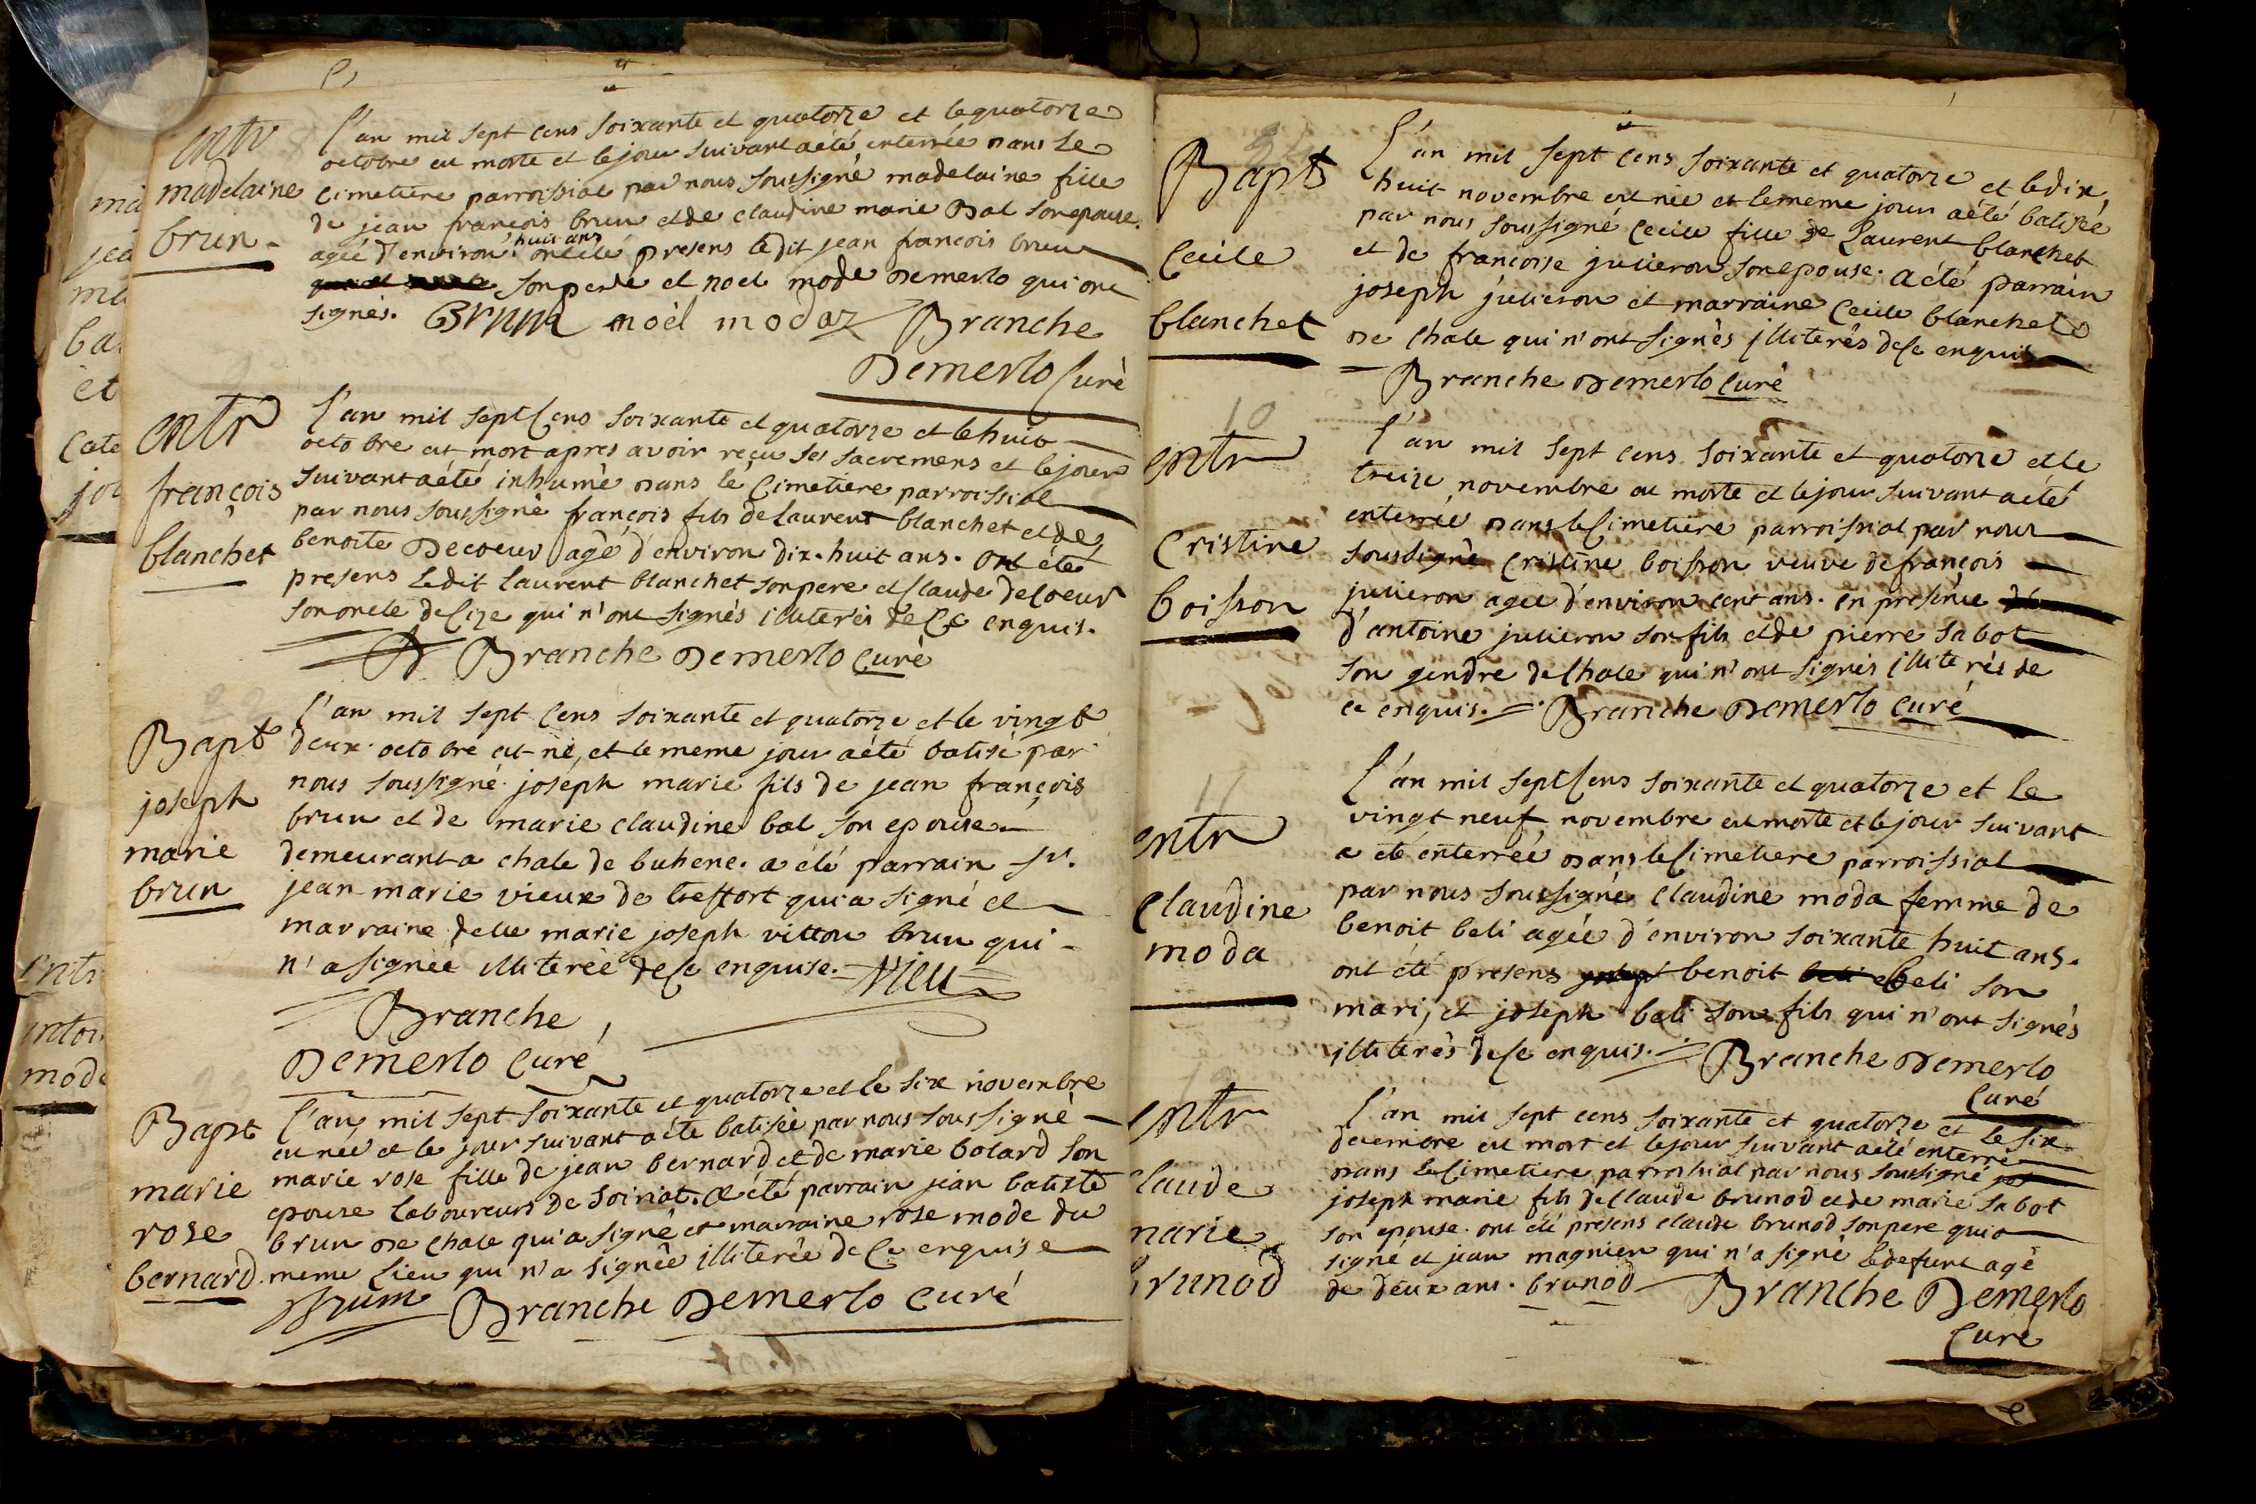 entr
madelaine
brun
l'an mil sept cens soixante et quatorze et le quatorze
octobre est morte et le jour suivant a été enterrée dans le
cimetiere parroissial par nous soussigné madelaine fille
de jean françois brun et de claudine marie bal son epouse.
agée d'environ huit ans ont été presens ledit jean françois brun
son pere et noel mode demerlo qui ont
signés. Brunn noèl modaz Branche
Demerlo Curè
entr
françois
blanchet
l'an mil sept Cens soixante et quatorze et le huit
octobre est mort apres avoir reçu ses sacremens et le jour
suivant a été inhumé dans le Cimetiere parroissial
par nous soussigné françois fils de laurent blanchet et de
benoite Decoeur agé d'environ dix-huit ans. Ont été
presens ledit laurent blanchet son pere et Claude decoeur
son oncle de Cize qui n'ont signés illiterés de Ce enquis.
Branche Demerlo Curé
Bapt
joseph
marie
brun
l'an mil sept Cens soixante et quatorze et le vingt
deux octobre est né, et le meme jour a été batisé par
nous soussigné joseph marie fils de jean françois
brun et de marie claudine bal son epouse
demeurant a chale de buhene. a été parrain sr.
jean marie vieux de treffort qui a signé et
marraine delle marie joseph vitton brun qui
n'a signée illiterée de Ce enquise. Vieu
Branche
Demerlo Curé
Bapt
marie
rose
bernard
l'an mil sept soixante et quatorze et le six novembre
est née et le jour suivant a été batisée par nous soussigné
marie rose fille de jean bernard et de marie bolard son
epouse laboureurs de soiriat. a été parrain jean batiste
brun de chale qui a signé et marraine rose mode du
meme lieu qui n'a signée illiterée de Ce enquise
Brunn Branche Demerlo Curé
Bapt
Cecile
blanchet
L'an mil sept cens soixante et quatorze et le dix,
huit novembre est née et le meme jour a été batisée
par nous soussigné Cecile fille de Laurent blanchet
et de francoise juilleron son epouse. A été parrain
joseph juilleron et marraine Cecile blanchet
de Chale qui n'ont signés illiterés de Ce enquis
Branche Demerlo Curé
10
entr
Cristine
boisson
l'an mil sept cens soixante et quatorze et le
treize novembre est morte et le jour suivant a été
enterrée dans le Cimetiere parroissial par nous
soussigné Cristine boisson veuve de françois
juilleron agée d'environ cent ans. en presence
d'antoine juilleron son fils et de pierre sabot
son gendre de Chale qui n'ont signés illiterés de
ce enquis. Branche Demerlo Curé
11
entr
Claudine
moda
l'an mil sept Cens soixante et quatorze et le
vingt neuf novembre est morte et le jour suivant
a été enterreé dans le Cimetiere parroissial
par nous soussigné Claudine moda femme de
benoit beli agée d'environ soixante huit ans.
ont été presens benoit beli son
mari, et joseph beli son fils qui n'ont signés
illiterés de Ce enquis. Branche Demerlo
Curé
entr
laude
marie
brunod
l'an mil sept cens soixante et quatorze et le six
decembre est mort et le jour suivant a été enterré
dans le Cimetiere parroissial par nous soussigné
joseph marie fils de Claude brunod et de marie sabot
son epouse. ont été presens claude brunod son pere qui a
signé et jean magnien qui n'a signé le defunt agé
de deux ans. brunod Branche Demerlo
Curé